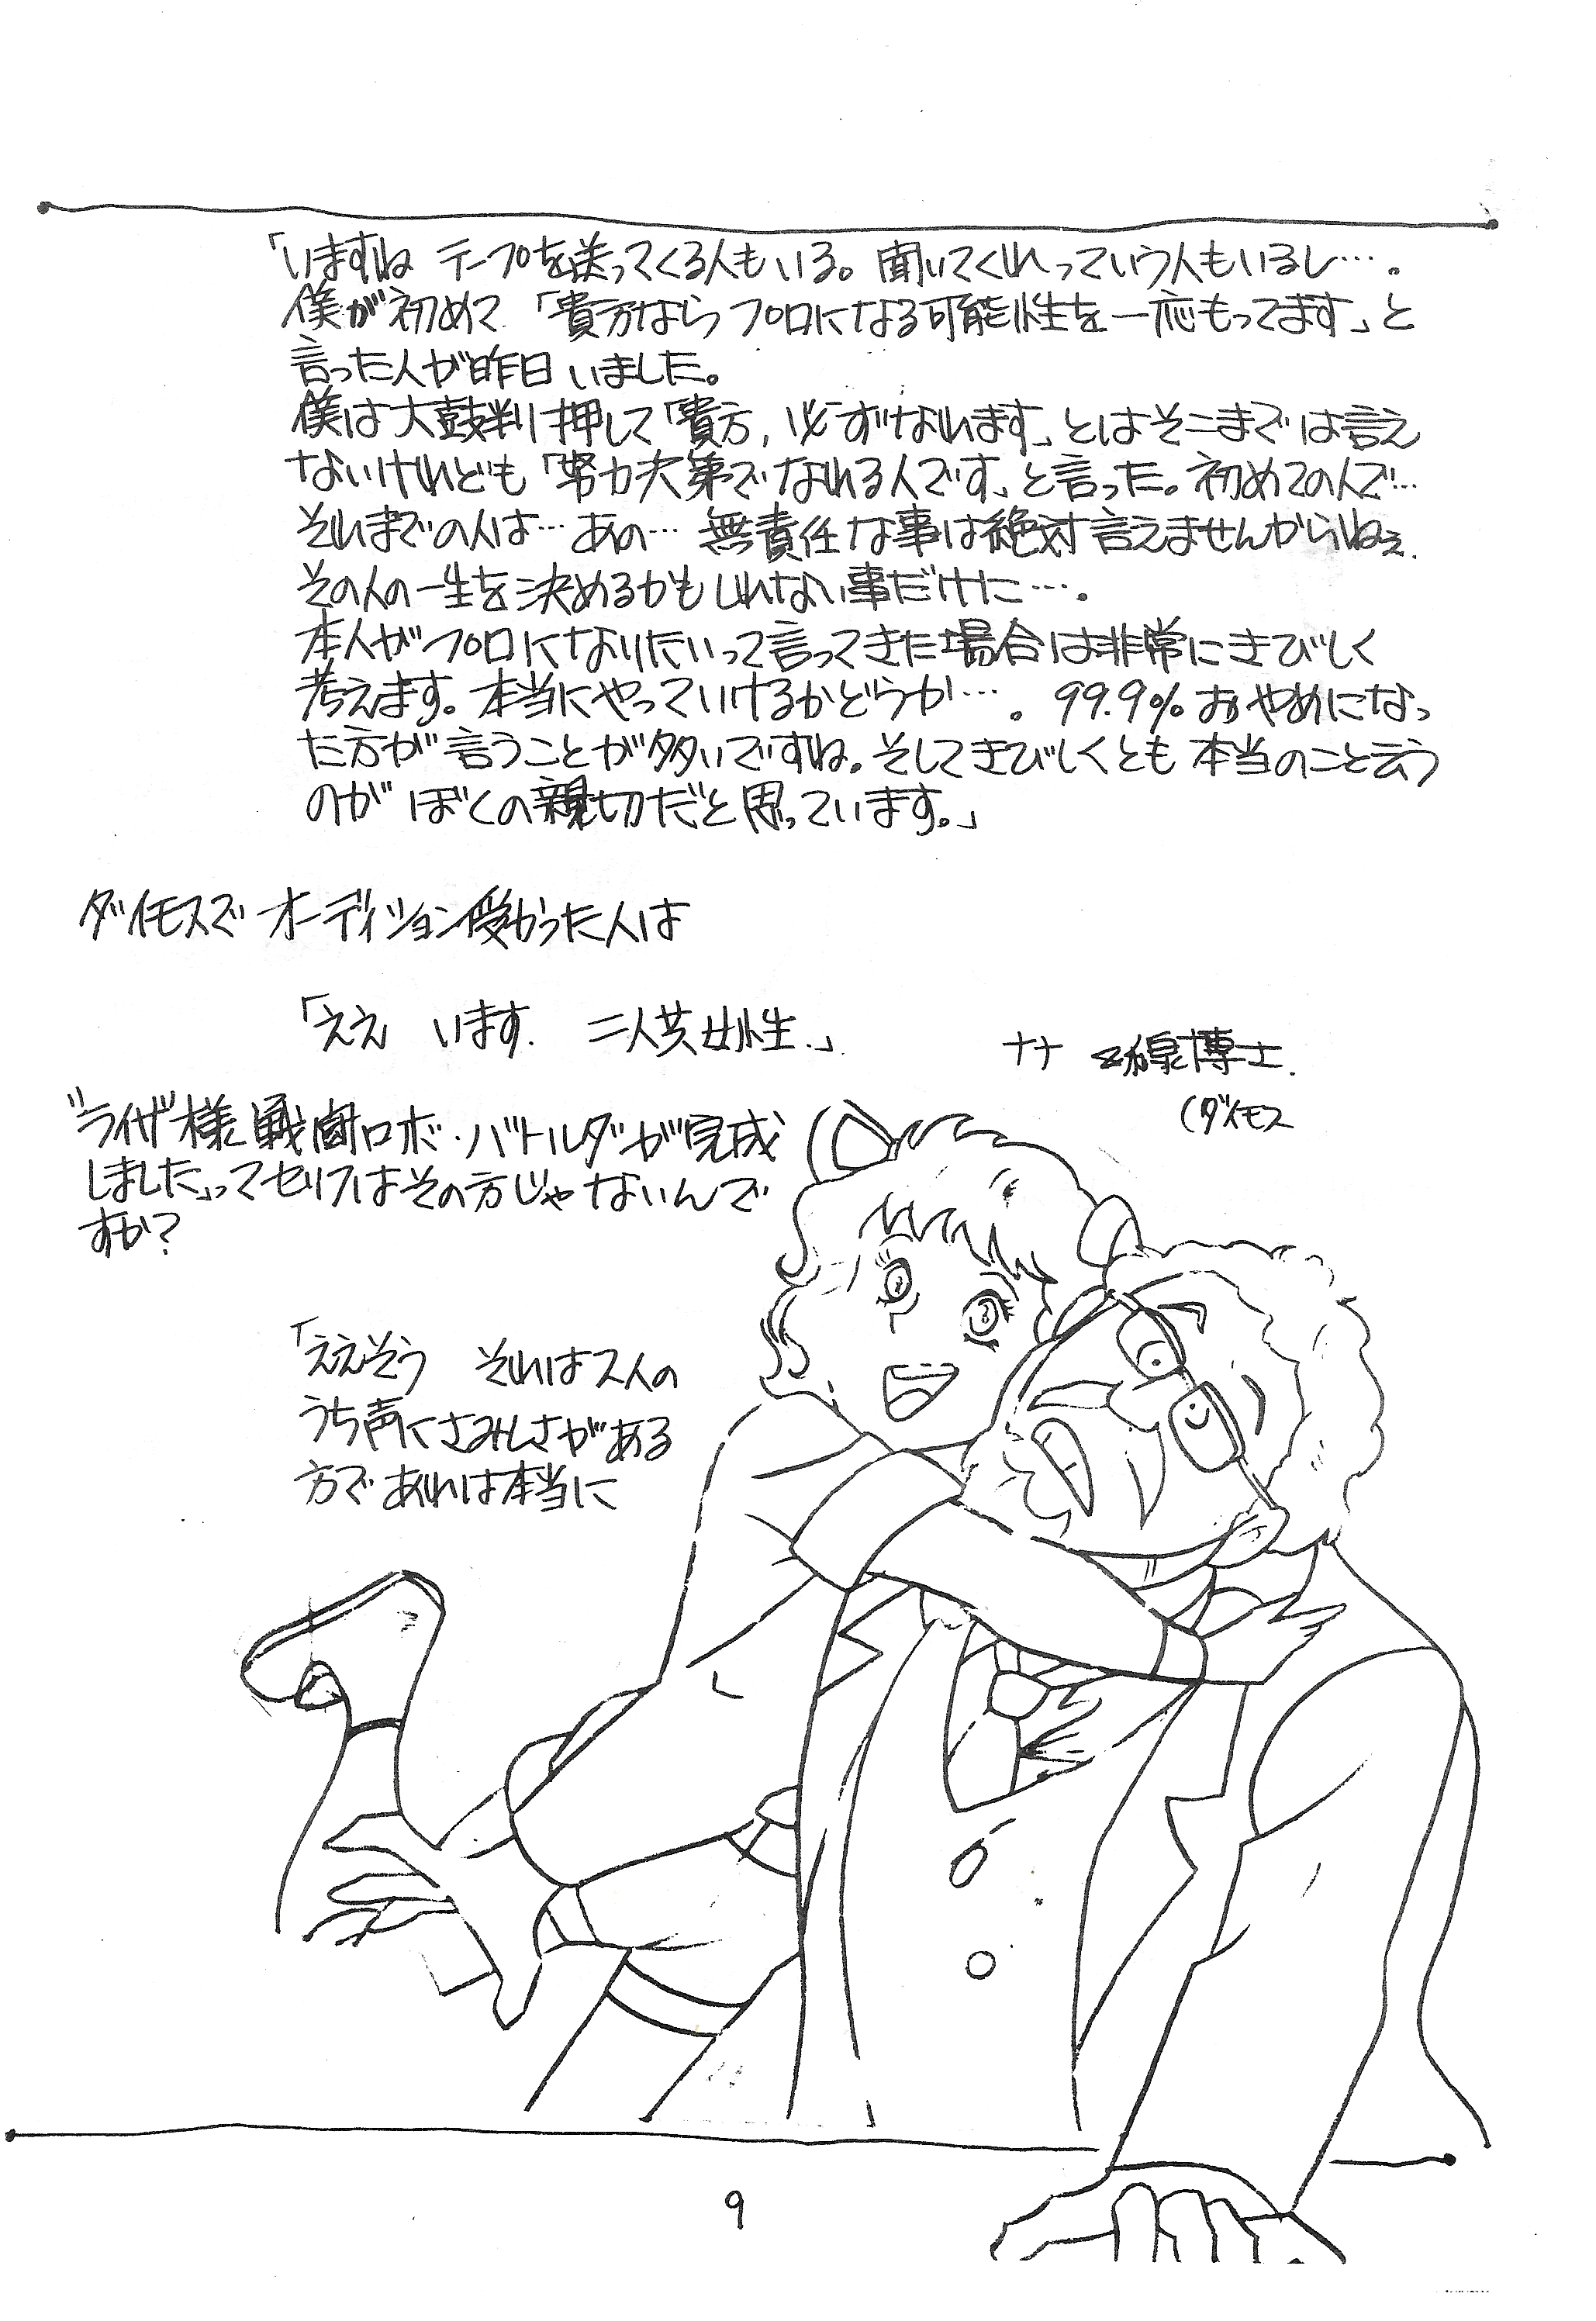 「いますね テープを送ってくる人もいる。聞いてくれっていう人もいるし…。
僕が初めて「貴方ならプロになる可能性を一応もってます」と
言った人が昨日いました。
僕は大鼓判押して「貴方,必ずなれます」とはそこまでは言え
ないけれども「努力次第でなれる人です」と言った。初めての人で…
それまでの人は…あの…無責任な事は絶対言えませんからねぇ.
その人の一生を決めるかもしれない事だけに…。
本人がプロになりたいって言ってきた場合は非常にきびしく
考えます。本当にやっていけるかどうか…。99.9%おやめになっ
た方が言うことが多いですね。そしてきびしくとも本当のこと云う
のがぼくの親切だと思っています。」
ダイモスでオーディション受かった人は
「ええ います. 二人共女性.」
ナナ 和泉博士.
(ダイモス
"ライザ"様戦闘ロボ・バトルダが完成
しました」ってセリフはその方じゃないんで
すか?
「ええそう それは2人の
うち声にさみしさがある
方であれは本当に
9